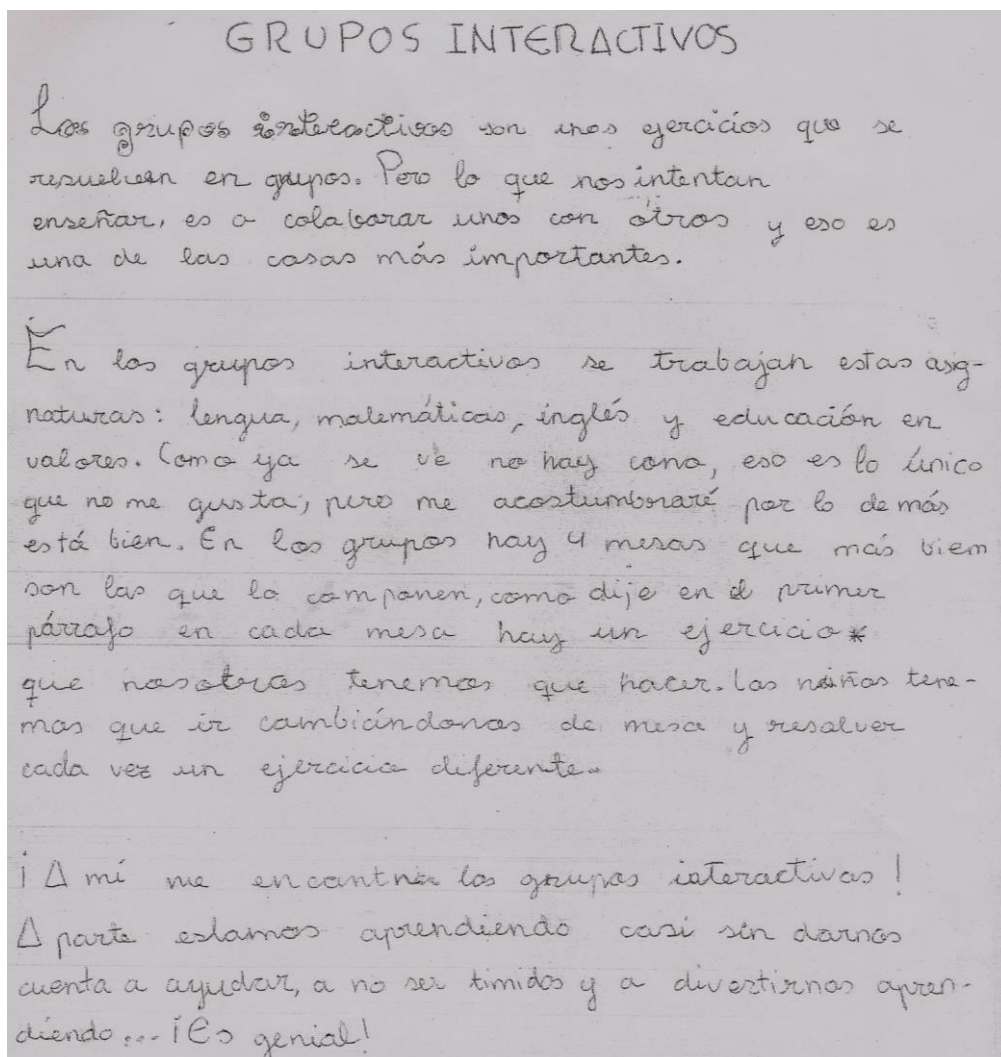 GRUPOS INTERACTIVOS
Los grupos interactivos son unos ejercicios que se
resuelven en grupos. Pero lo que nos intentan
enseñar, es a colaborar unos con otros y eso es
una de las cosas más importantes.
En los grupos interactivos se trabajan estas asig-
naturas: lengua, matemáticas, inglés y educación en
valores. Como ya se ve no hay cono, eso es lo único
que no me gusta, pero me acostumbraré por lo demás
está bien. En los grupos hay 4 mesas que más biem
son las que lo componen, como dije en el primer
párrafo en cada mesa hay un ejercicio*
que nosotros tenemos que hacer. Los niños tene-
mos que ir cambiándonos de mesa y resolver
cada vez un ejercicio diferente.
¡A mí me encantan los grupos iateractivos!
Aparte estamos aprendiendo casi sin darnos
cuenta a ayudar, a no ser timidos y a divertirnos apren-
diendo... ¡Es genial!